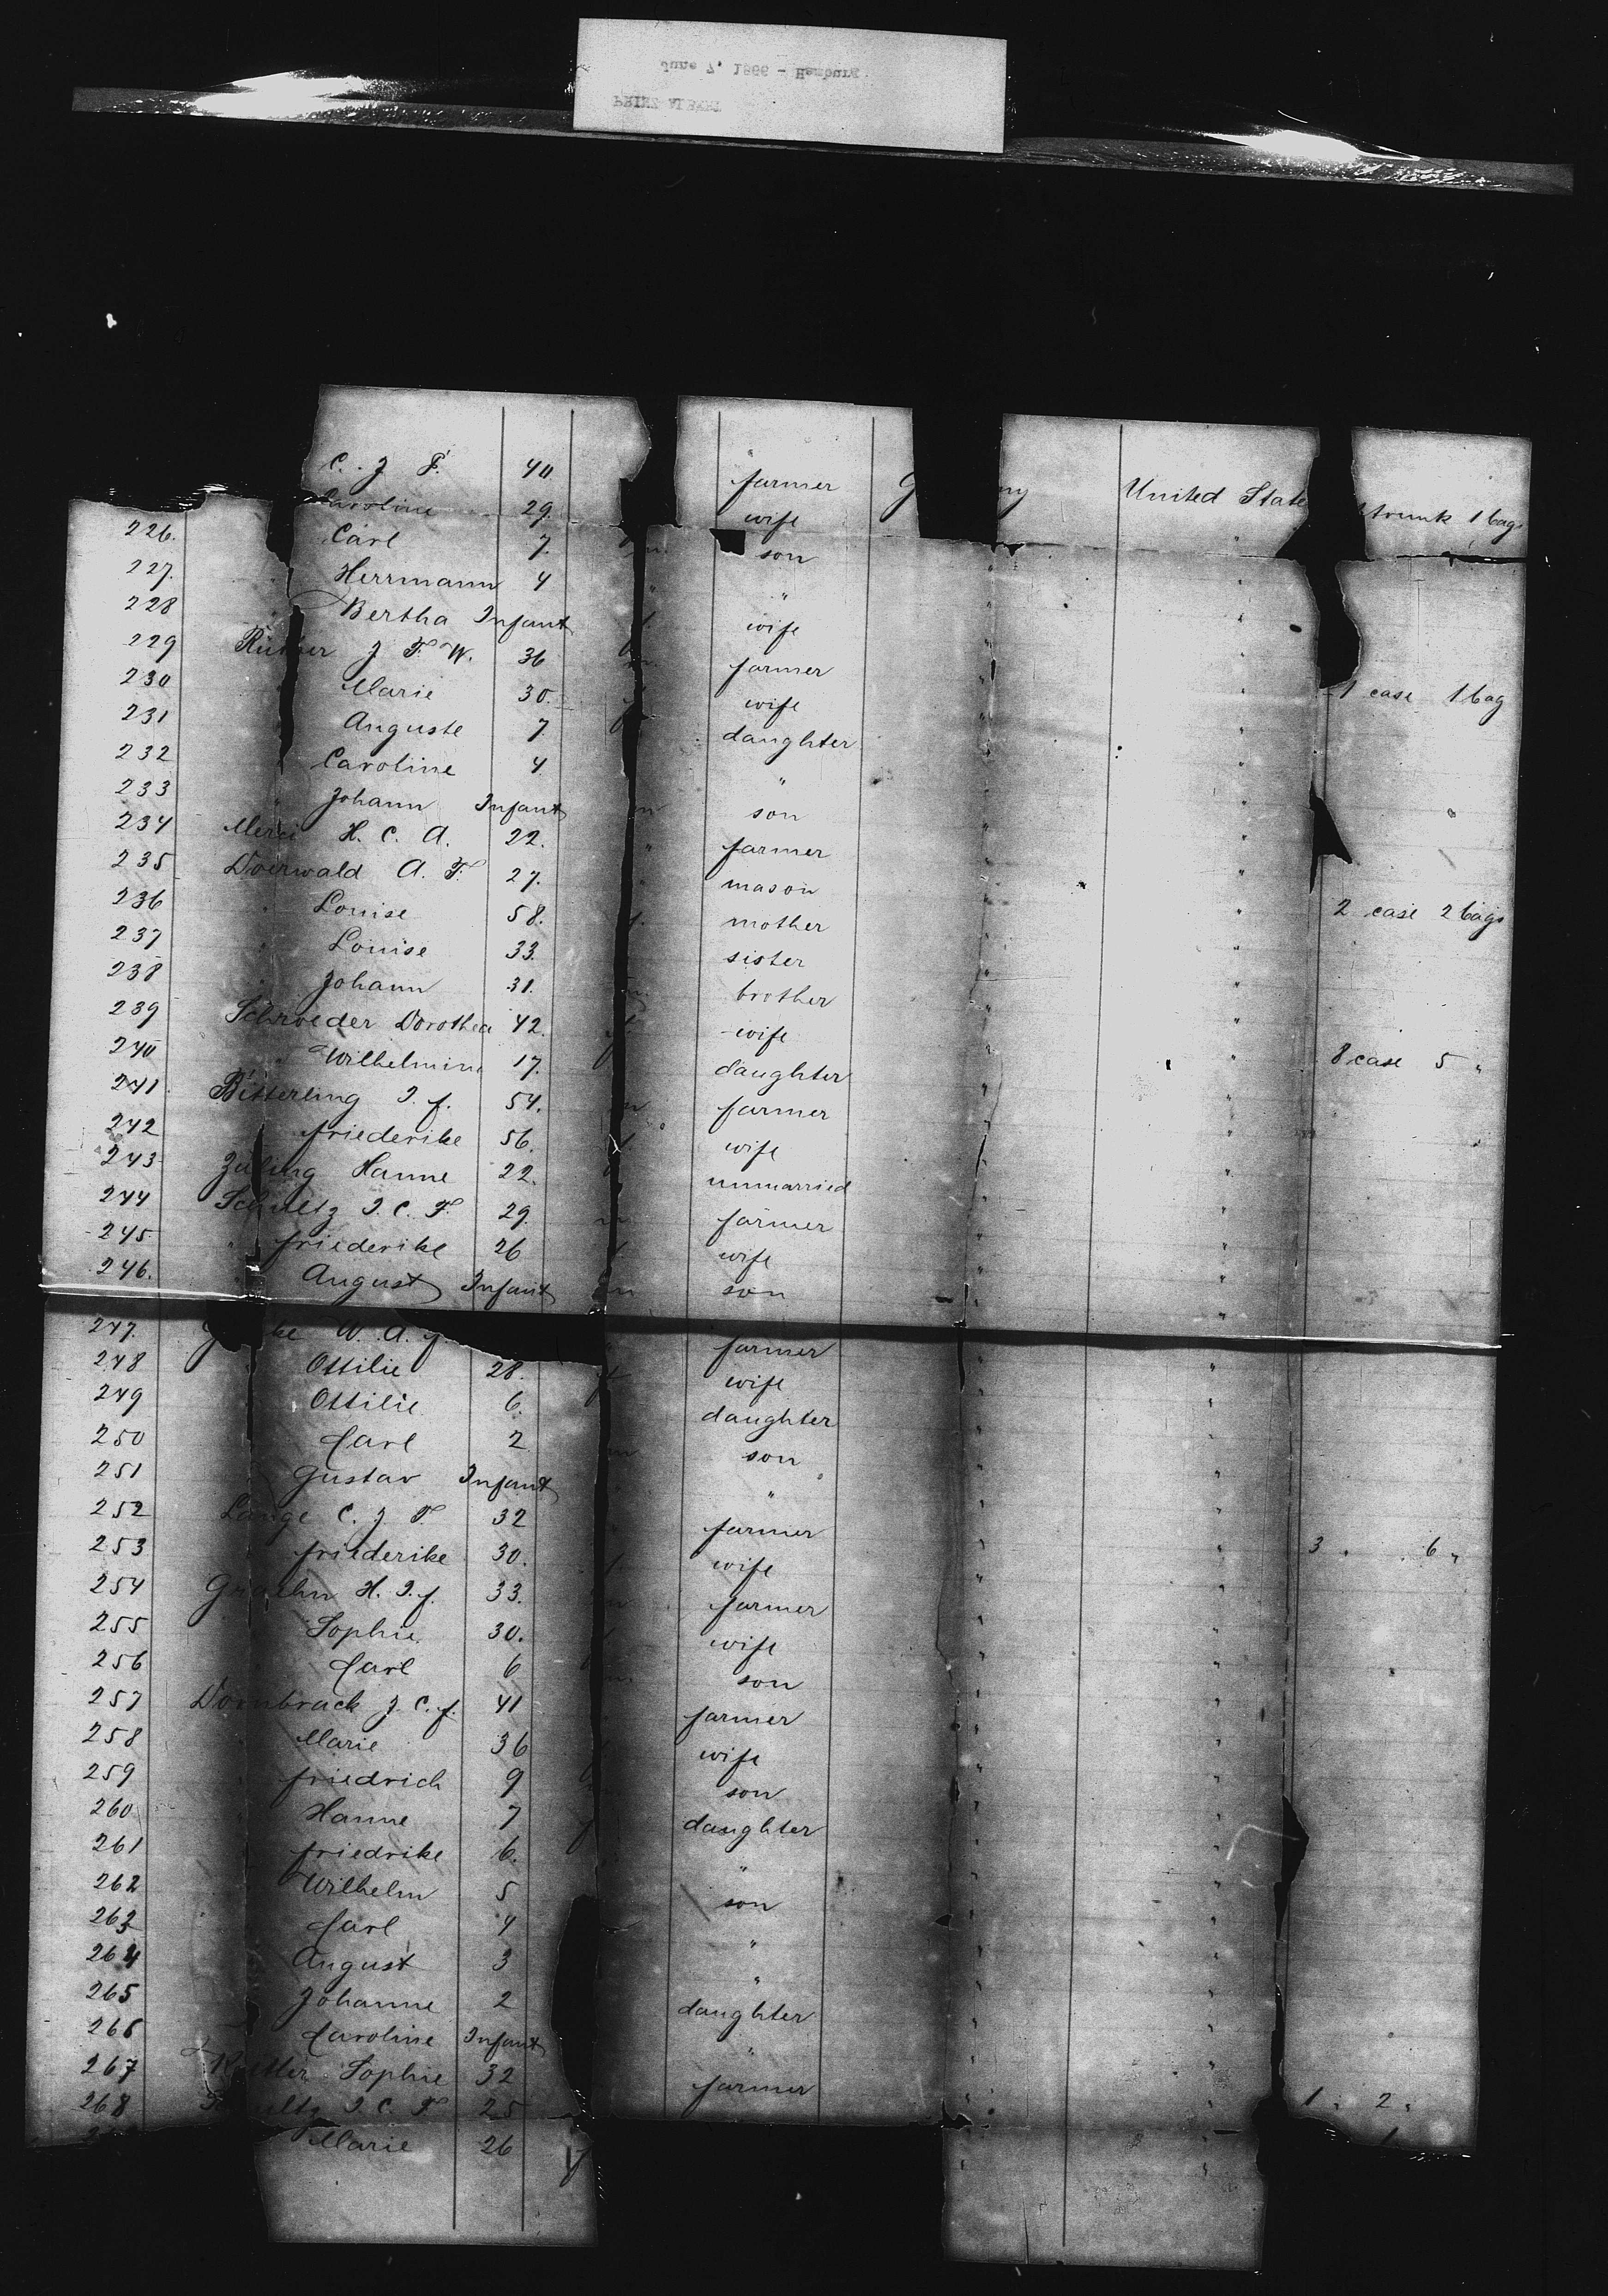 June 7, 1866 - Hamburg.
PRINZ ALBERT
C. J F. 40 farmer United State trunk 1 bag
Caroline 29. wife
226. Carl 7. m. son
227. Herrmann 4 " "
228 Bertha Infant wife
229 J F. W. 36 m. farmer
230 Marie 30. wife 1 case 1 bag
231 Auguste 7 daughter
232 Caroline 4 "
233 Johann Infant m son
234 H. C. A. 22. " farmer
235 Doerwald A. F. 27. " mason
236 " Louise 58. f. mother 2 case 2 bags
237 " Louise 33. sister
238 Johann 31. m. brother
239 Schroeder Dorothea 42. f. wife
240 " Wilhelmine 17. daughter 8 case 5 "
241 Bitterling J. f. 54. m farmer
242 friederike 56. f. wife
243 Hanne 22. unmarried
244 Schultz J. C. F. 29. m farmer
245 " friederike 26 f wife
246. " August Infant m son
247. W. A. f. farmer
248 Ottilie 28. f wife
249 Ottilie 6. daughter
250 Carl 2 m son
251 Gustav Infant " "
252 Lange C. J F. 32 farmer
253 friederike 30. f. wife 3 " 6 "
254 H. J. f. 33. m farmer
255 Sophie 30. wife
256 Carl 6 m son
257 Dornbrack J. C. f. 41 farmer
258 Marie 36 wife
259 friedrich 9 m son
260 Hanne 7 f daughter
261 friedrike 6. "
262 Wilhelm 5 son
263 Carl 4 "
264 August 3 "
265 Johanne 2 daughter
266 Caroline Infant "
267 Sophie 32 farmer
268 J. C. F 25 1 " 2 "
Marie 26 f